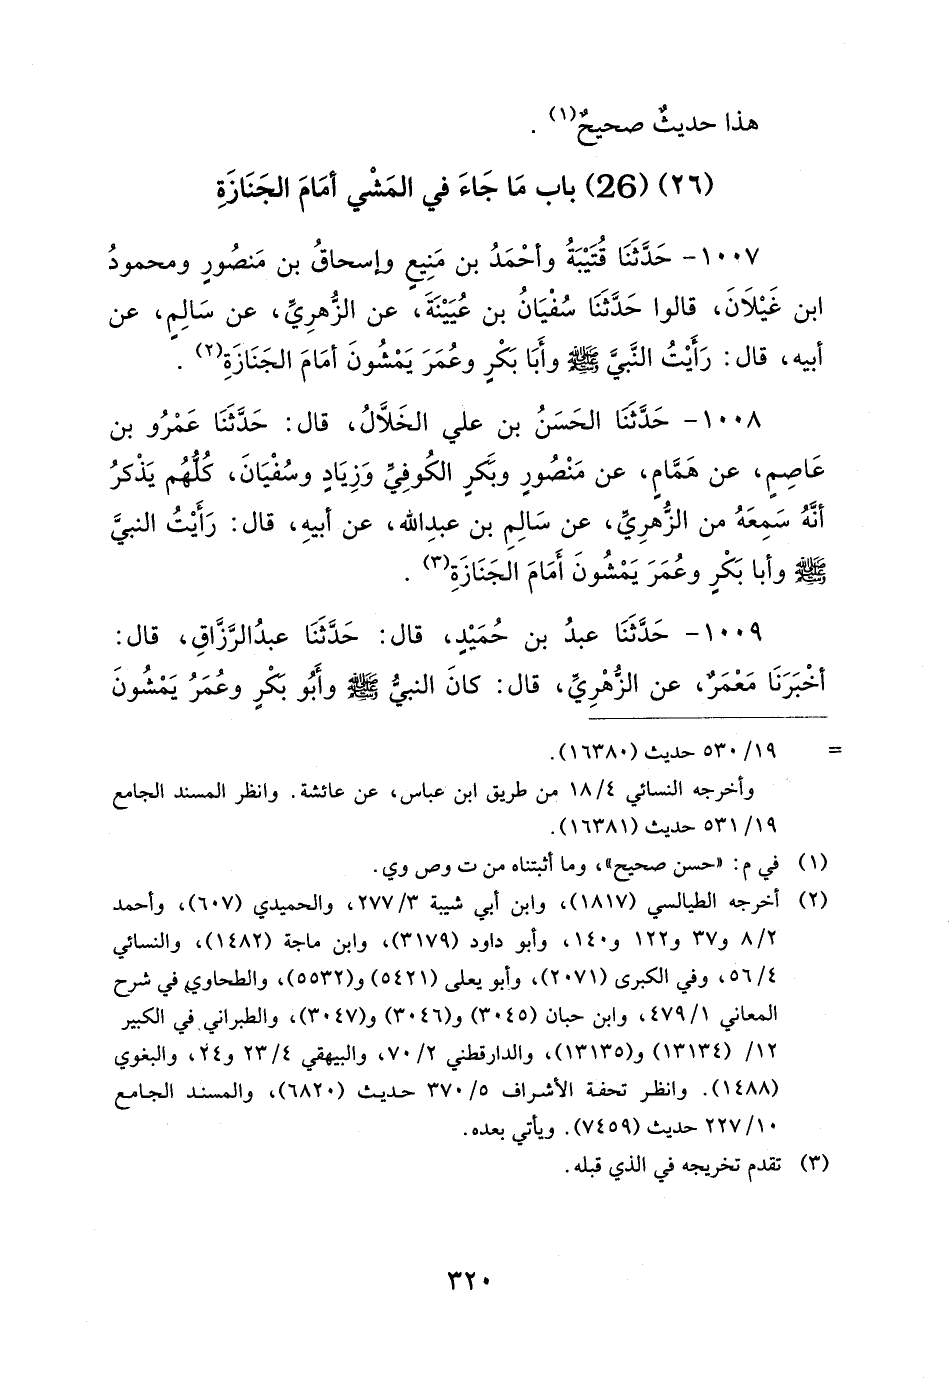 هذا حديثٌ صحيحٌ(١) .
(٢٦) (26) باب مَا جَاءَ في المَشْي أمَامَ الجَنَازَةِ
١٠٠٧- حَدَّثَنَا قُتَيْبَةُ وأحْمَدُ بن مَنِيعٍ وإسحاقُ بن مَنصُورٍ ومحمودُ
ابن غَيْلَانَ، قالوا حَدَّثَنَا سُفْيَانُ بن عُيَيْنَةَ، عن الزُّهرِيِّ، عن سَالِمٍ، عن
أبيه، قال: رَأَيْتُ النَّبيَّ ﷺ وأَبَا بَكْرٍ وعُمَرَ يَمْشُونَ أمَامَ الجَنَازَةِ(٢) .
١٠٠٨- حَدَّثَنَا الحَسَنُ بن علي الخَلَّالُ، قال: حَدَّثَنَا عَمْرُو بن
عَاصِمٍ، عن هَمَّامٍ، عن مَنْصُورٍ وبَكرٍ الكُوفِيِّ وَزِيَادٍ وسُفْيَانَ، كُلُّهُم يَذْكرُ
أنَّهُ سَمِعَهُ من الزُّهرِيِّ، عن سَالِمِ بن عبدِالله، عن أبيهِ، قال: رَأَيْتُ النبيَّ
ﷺ وأبا بَكْرٍ وعُمَرَ يَمْشُونَ أَمَامَ الجَنَازَةِ(٣) .
١٠٠٩- حَدَّثَنَا عبدُ بن حُمَيْدٍ، قال: حَدَّثَنَا عبدُالرَّزَّاقِ، قال:
أخْبَرَنَا مَعْمَرٌ، عن الزُّهْرِيِّ، قال: كانَ النبيُّ ﷺ وأَبُو بَكْرٍ وعُمَرُ يَمْشُونَ
= ١٩/ ٥٣٠ حديث (١٦٣٨٠).
وأخرجه النسائي ٤/ ١٨ من طريق ابن عباس، عن عائشة. وانظر المسند الجامع
١٩/ ٥٣١ حديث (١٦٣٨١).
(١) في م: «حسن صحيح»، وما أثبتناه من ت وص وي.
(٢) أخرجه الطيالسي (١٨١٧)، وابن أبي شيبة ٣/ ٢٧٧، والحميدي (٦٠٧)، وأحمد
٢/ ٨ و٣٧ و١٢٢ و١٤٠، وأبو داود (٣١٧٩)، وابن ماجة (١٤٨٢)، والنسائي
٤/ ٥٦، وفي الكبرى (٢٠٧١)، وأبو يعلى (٥٤٢١) و(٥٥٣٢)، والطحاوي في شرح
المعاني ١/ ٤٧٩، وابن حبان (٣٠٤٥) و(٣٠٤٦) و(٣٠٤٧)، والطبراني في الكبير
١٢/ (١٣١٣٤) و(١٣١٣٥)، والدارقطني ٢/ ٧٠، والبيهقي ٤/ ٢٣ و٢٤، والبغوي
(١٤٨٨). وانظر تحفة الأشراف ٥/ ٣٧٠ حديث (٦٨٢٠)، والمسند الجامع
١٠/ ٢٢٧ حديث (٧٤٥٩). ويأتي بعده.
(٣) تقدم تخريجه في الذي قبله.
٣٢٠